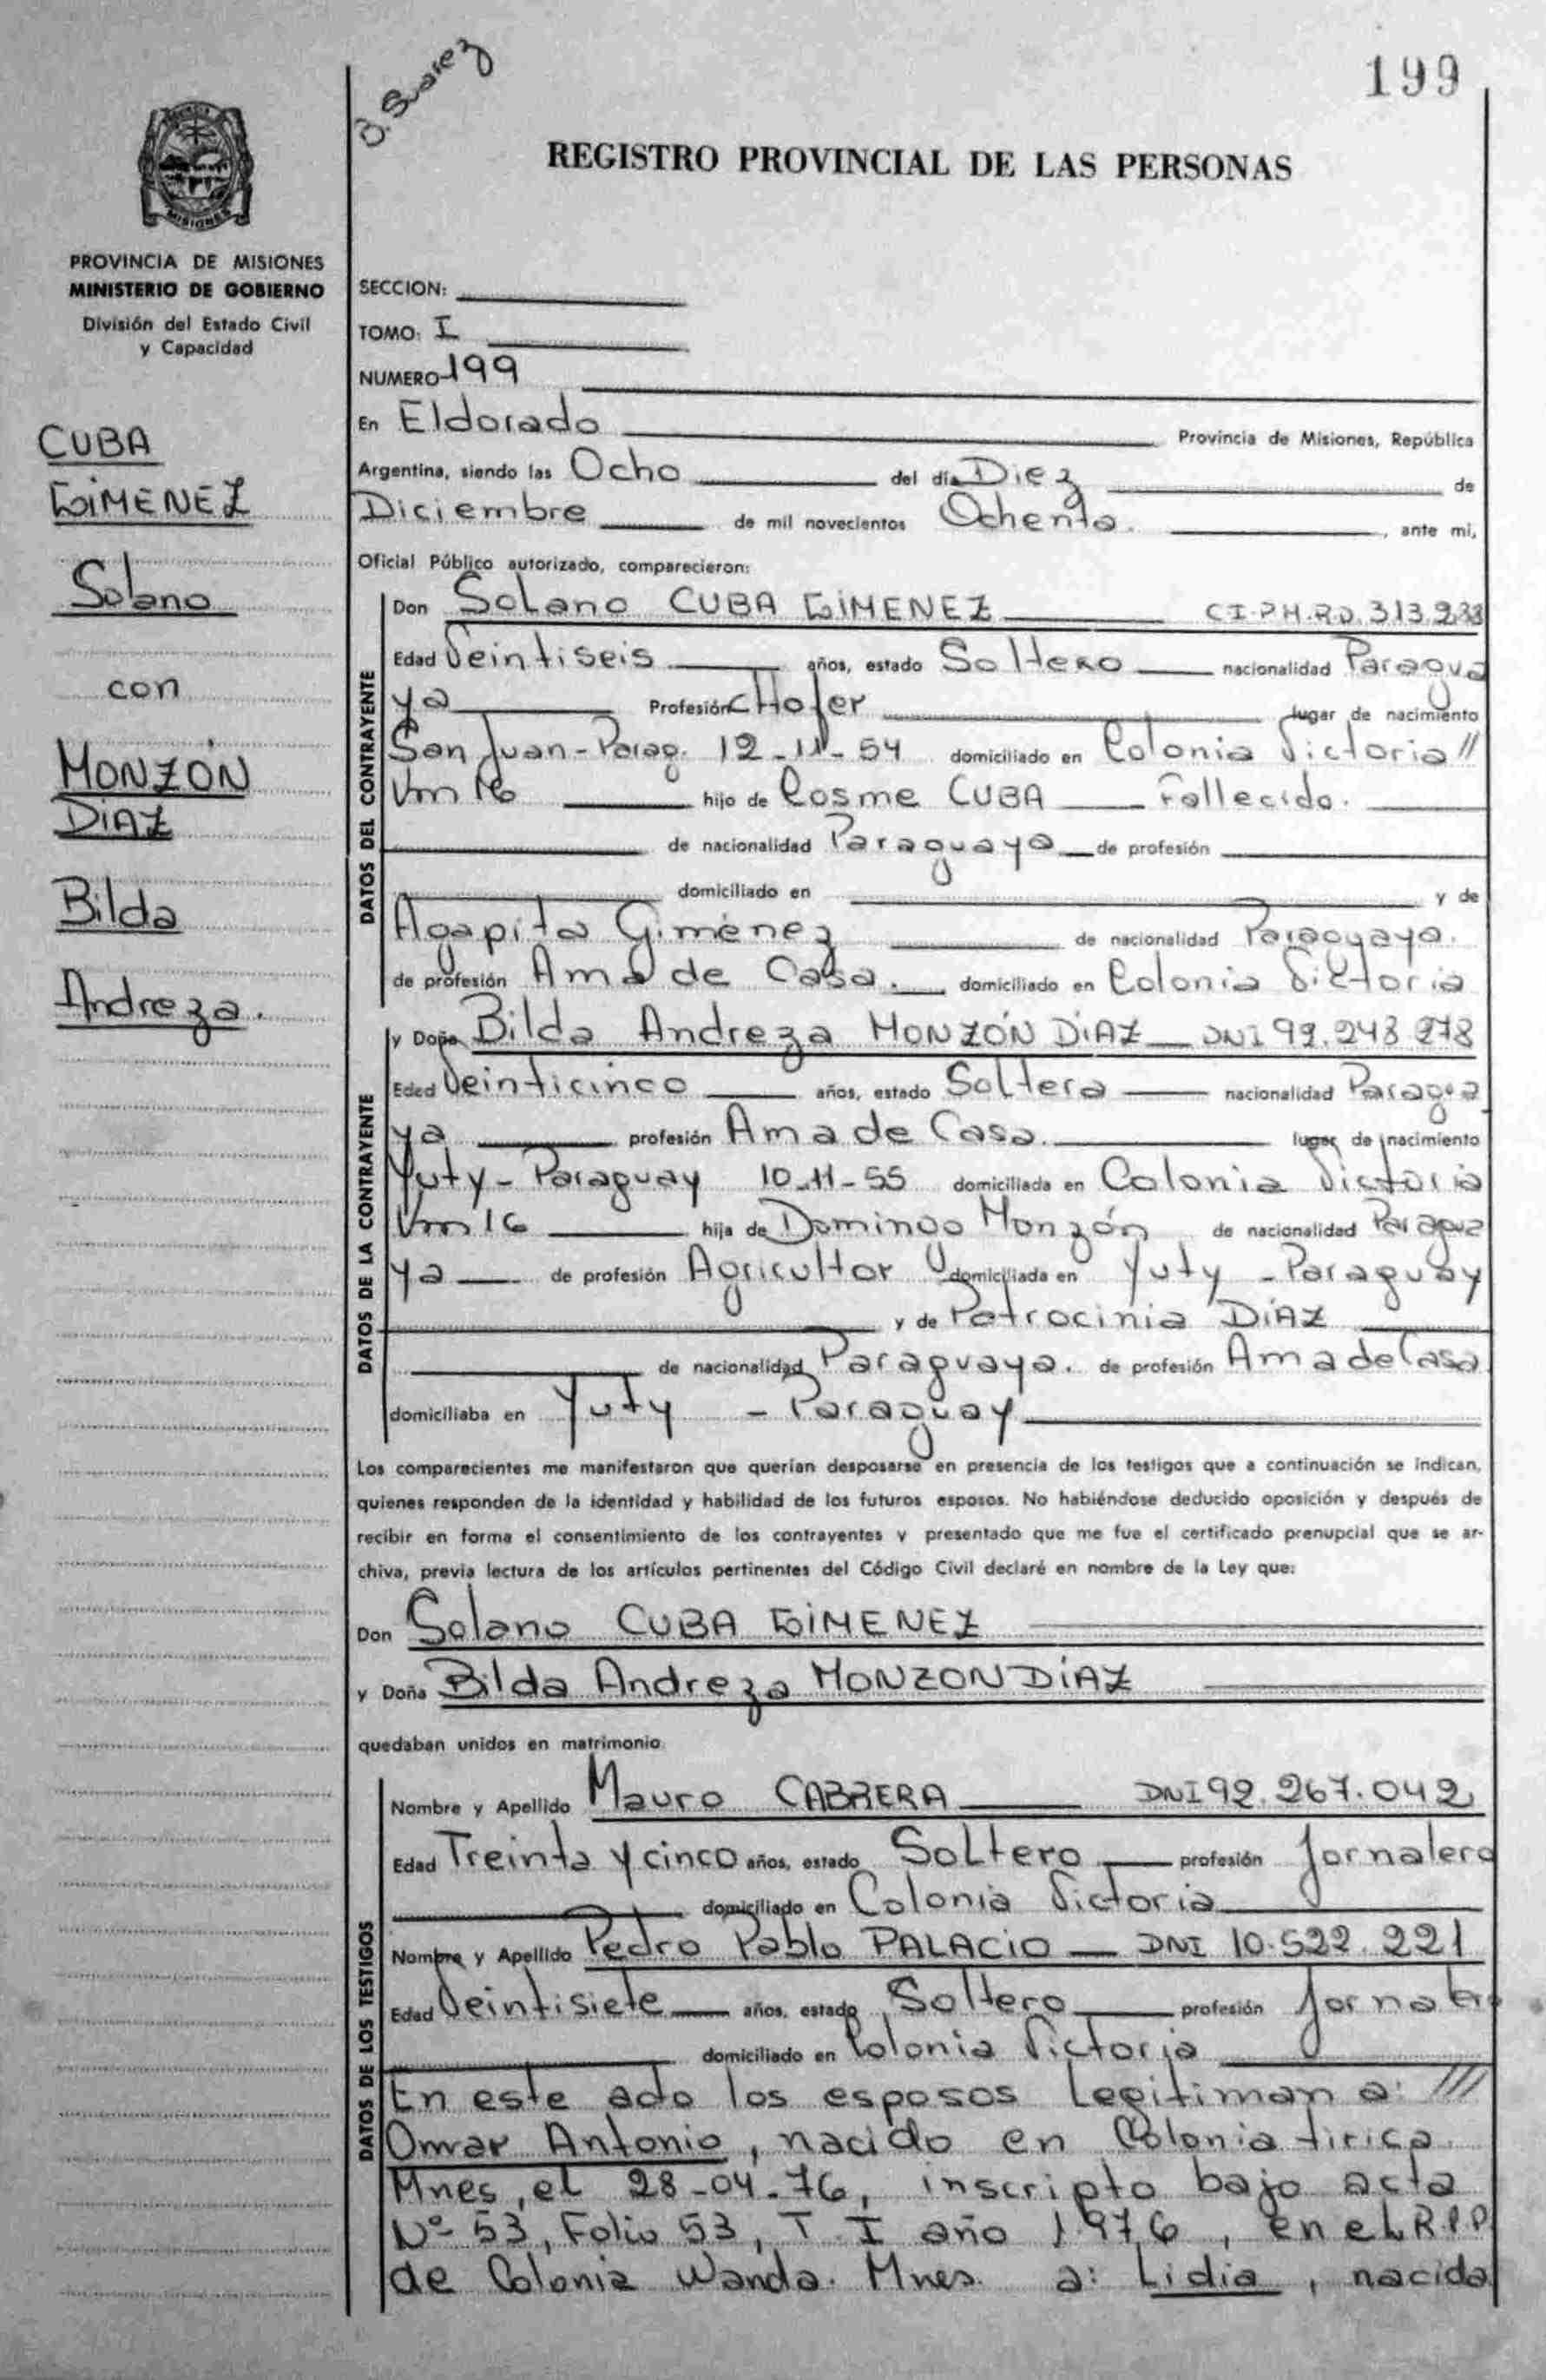 199
J. Suarez
REGISTRO PROVINCIAL DE LAS PERSONAS
MISIONES
PROVINCIA DE MISIONES
MINISTERIO DE GOBIERNO
División del Estado Civil
y Capacidad
CUBA
GIMENEZ
Solano
con
MONZÓN
DIAZ
Bilda
Andreza.
SECCION:
TOMO: I
NUMERO 199
En Eldorado Provincia de Misiones, República
Argentina, siendo las Ocho del día Diez de
Diciembre de mil novecientos Ochenta. , ante mi,
Oficial Público autorizado, comparecieron:
DATOS DEL CONTRAYENTE
Don Solano CUBA GIMENEZ CI.PH.RD.313.233
Edad Veintiseis años, estado Soltero nacionalidad Paragua
ya Profesión CHofer lugar de nacimiento
San Juan - Parag. 12-11-54 domiciliado en Colonia Victoria //
Km 16 hijo de Cosme CUBA Fallecido.
de nacionalidad Paraguaya de profesión
domiciliado en y de
Agapita Gimènez de nacionalidad Paraguaya.
de profesión Ama de Casa. domiciliado en Colonia Victoria
DATOS DE LA CONTRAYENTE
y Doña Bilda Andreza MONZÓN DÍAZ DNI 92.243.278
Edad Veinticinco años, estado Soltera nacionalidad Paragua
ya profesión Ama de Casa. lugar de nacimiento
Yuty - Paraguay 10-11-55 domiciliada en Colonia Victoria
Km 16 hija de Domingo Monzón de nacionalidad Paragua
ya de profesión Agricultor domiciliada en Yuty - Paraguay
y de Patrocinia DÍAZ
de nacionalidad Paraguaya. de profesión Ama de Casa
domiciliaba en Yuty - Paraguay
Los comparecientes me manifestaron que querían desposarse en presencia de los testigos que a continuación se indican,
quienes responden de la identidad y habilidad de los futuros esposos. No habiéndose deducido oposición y después de
recibir en forma el consentimiento de los contrayentes y presentado que me fue el certificado prenupcial que se ar-
chiva, previa lectura de los artículos pertinentes del Código Civil declaré en nombre de la Ley que:
Don Solano CUBA GIMENEZ
y Doña Bilda Andreza MONZON DÍAZ
quedaban unidos en matrimonio
DATOS DE LOS TESTIGOS
Nombre y Apellido Mauro CABRERA DNI 92.267.042
Edad Treinta y cinco años, estado Soltero profesión Jornalero
domiciliado en Colonia Victoria
Nombre y Apellido Pedro Pablo PALACIO DNI 10.522.221
Edad Veintisiete años, estado Soltero profesión Jornaler
domiciliado en Colonia Victoria
En este acto los esposos Legitiman a: ///
Omar Antonio, nacido en Colonia tirica
Mnes, el 28-04-76, inscripto bajo acta
Nº 53, Folio 53, T. I año 1.976, en el R.P.P.
de Colonia Wanda. Mnes. a: Lidia, nacida